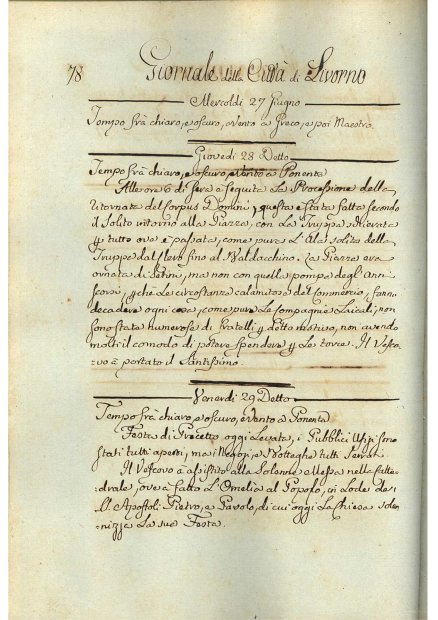 78
Giornale della Città di Livorno
Mercoldì 27 Giugno
Tempo frà chiaro, e oscuro, e vento a Greco, e poi Maestro.
Giovedì 28 Detto
Tempo frà chiaro, e oscuro, e vento a Ponente
Alle ore 6 di sera è seguita la Processione della
Ritornata del Corpus Domini, questa è stata fatta secondo
il solito intorno alla Piazza, con la Truppa
tutto ove è passata, come pure l'Ala solita della
Truppa dal clero fino al Baldacchino. La Piazza era
ornata di Setini, ma non con quella pompa degl'anni
scorsi, chè le circostanze calamitose del Commercio, fanno
decadere ogni cosa, come pure le Compagnie Laicali, non
sono state numerose di fratelli detto motivo, non avendo
molti il comodo di potere spendere le torce. Il Vesco-
vo à portato il Santissimo.
Venerdì 29 Detto
Tempo frà chiaro, e oscuro, e Vento a Ponente
Festa di Precetto oggi Levata, i Pubblici Ufizi sono
stati tutti aperti, ma i Negozi, e Botteghe tutti serrati.
Il Vescovo à assistito alla Solenne Messa nella Catte-
drale, ove à fatto l'Omelia al Popolo, in lode de
SS. Apostoli Pietro, e Pavolo, di cui oggi la Chiesa sole-
nizza la sua Festa.